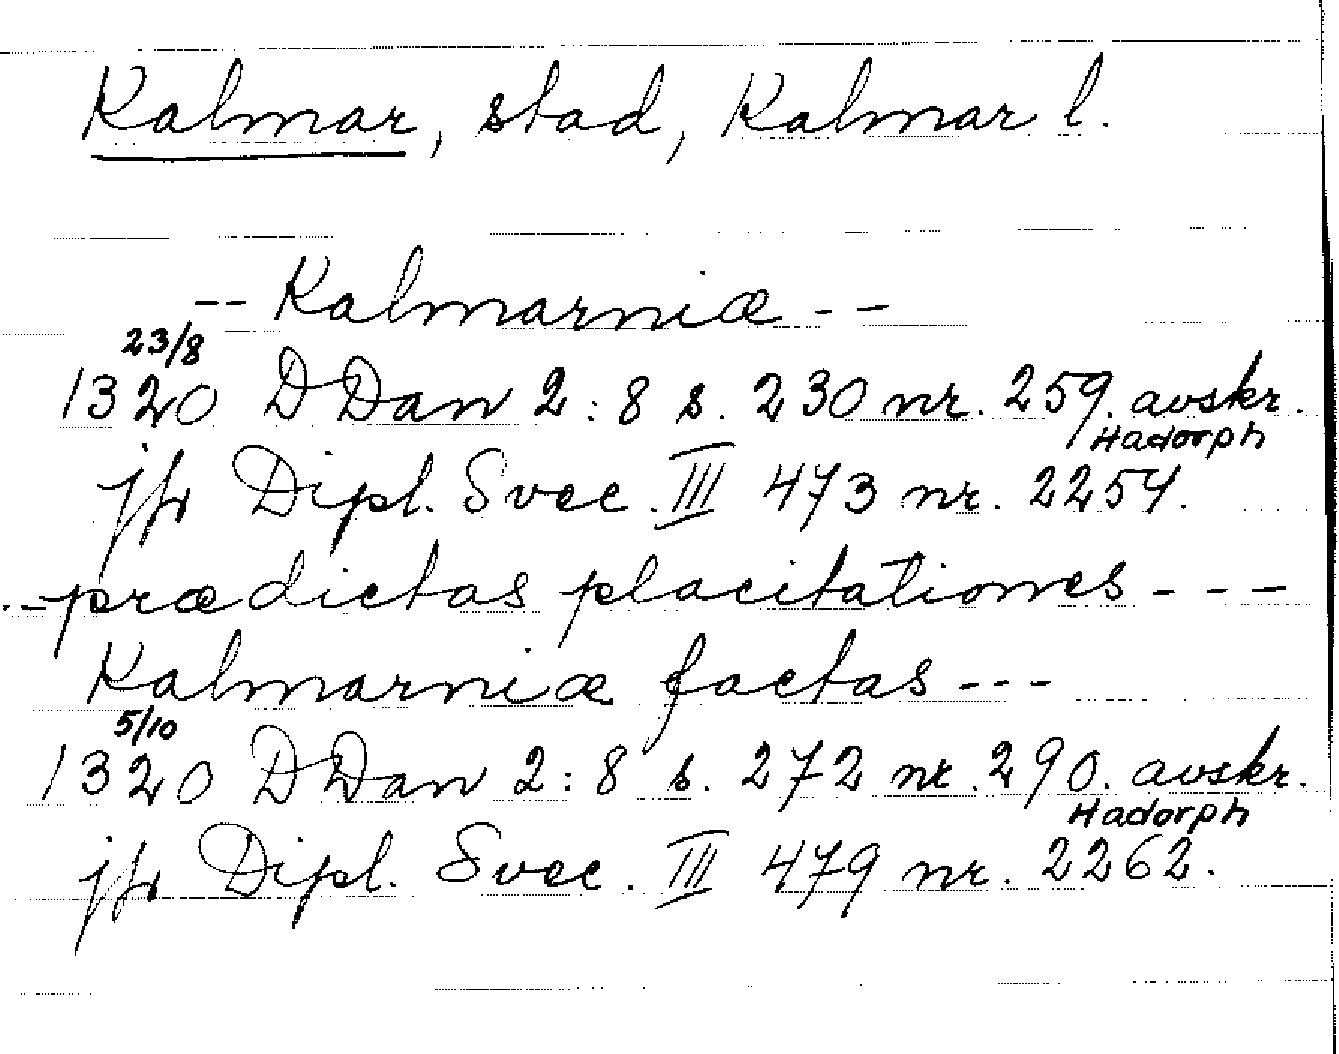 Kalmar, stad, Kalmar l.
-- Kalmarniæ --
23/8
1320 DDan 2:8 s. 230 nr. 259. avskr.
Hadorph
jfr Dipl. Svec. III 473 nr. 2254.
--prædictas placitationes ---
Kalmarniæ factas ---
5/10
1320 DDan 2:8 s. 272 nr. 290. avskr.
Hadorph
jfr Dipl. Svec. III 479 nr. 2262.